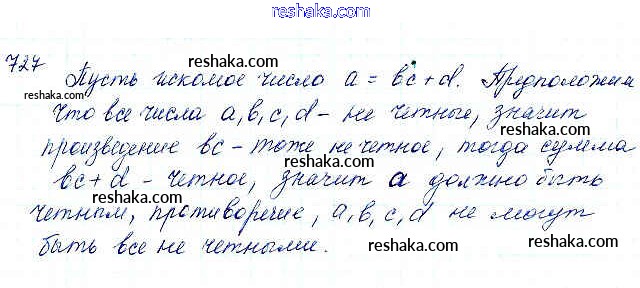 reshaka.com
727
Пусть искомое число a = bc + d. Предположим
reshaka.com
reshaka.com
reshaka.com
что все числа a, b, c, d - не четные, значит
reshaka.com
произведение bc - тоже не четное, тогда сумма
reshaka.com
bc + d - четное, значит a должно быть
reshaka.com
четным, противоречие, a, b, c, d не могут
reshaka.com
быть все не четными.
reshaka.com
reshaka.com